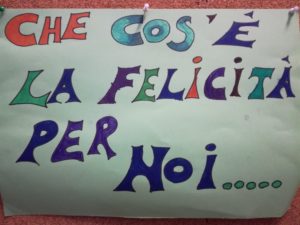 CHE COS'È
LA FELICITÀ
PER
NOi.....